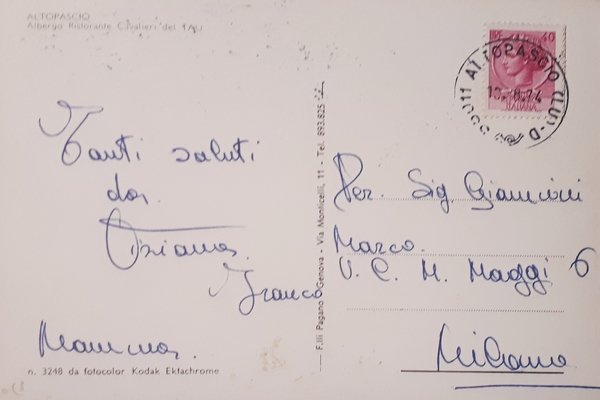 ALTOPASCIO
Albergo Ristorante Cavalieri del TAU
Tanti saluti
da
Tiziana
Franco
Mamma
n. 3248 da fotocolor Kodak Ektachrome
F.lli Pagano - Genova - Via Monticelli, 11 - Tel. 893.825
40
55011 ALTOPASCIO (LU)
8.74
Per. Sig. Giannini
Marco
V. C. M. Maggi 6
Milano